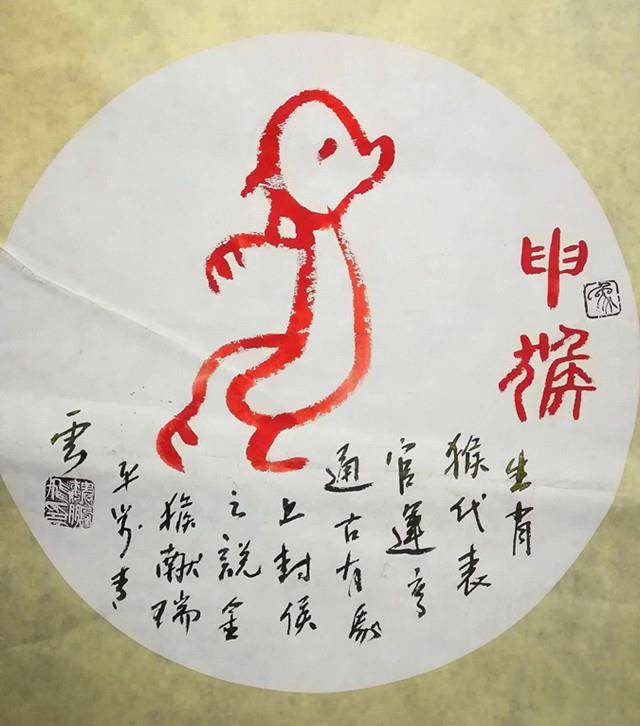 申猴
生肖
猴代表
官運亨
通古有馬
上封侯
之說金
猴献瑞
平步青
雲